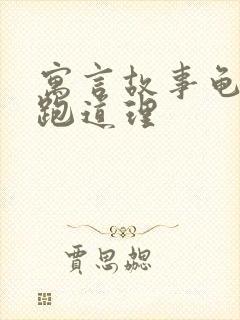 寓言故事龟
跑道理
贾思勰